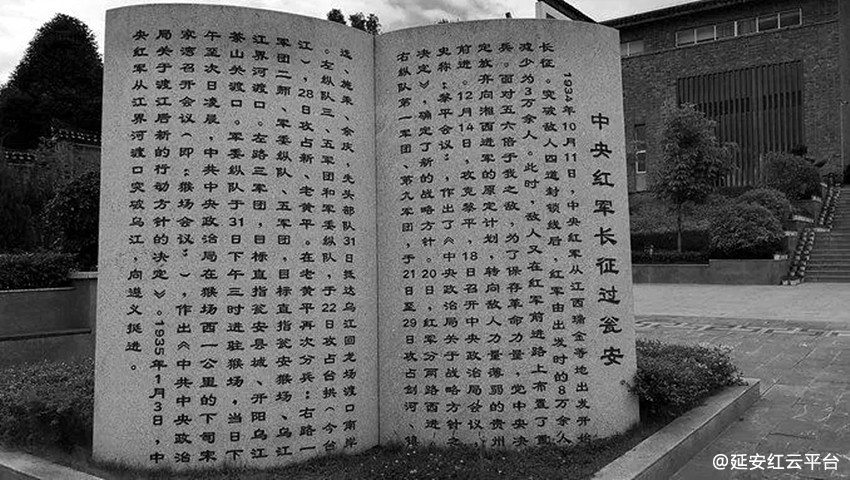 中央红军长征过瓮安
1934年10月11日，中央红军从江西瑞金等地出发开始
长征。突破敌人四道封锁线后，红军由出发时的8万余人
减少为3万余人。此时，敌人又在红军前进路上布置了重
兵。面对五六倍于我之敌，为了保存革命力量，党中央决
定放弃向湘西进军的原定计划，转向敌人力量薄弱的贵州
前进。12月14日，攻克黎平，18日召开中央政治局会议，
史称：黎平会议，作出了《中央政治局关于战略方针之
决定》，确定了新的战略方针。20日，红军分两路西进，
右纵队第一军团、第九军团，于21日至29日攻占剑河、镇
远、施秉、余庆，先头部队31日抵达乌江回龙场渡口南岸
。左纵队三、五军团和军委纵队，于22日攻占台拱（今台
江），28日攻占新、老黄平。在老黄平再次分兵：右路一
军团二师、军委纵队、五军团，目标直指瓮安猴场、乌江
江界河渡口。左路三军团，目标直指瓮安县城、开阳乌江
茶山关渡口。军委纵队于31日下午三时进驻猴场。当日下
午至次日凌晨，中共中央政治局在猴场西一公里的下司宋
家湾召开会议（即：猴场会议），作出《中共中央政治
局关于渡江后新的行动方针的决定》。1935年1月3日，中
央红军从江界河渡口突破乌江，向遵义挺进。
@延安红云平台